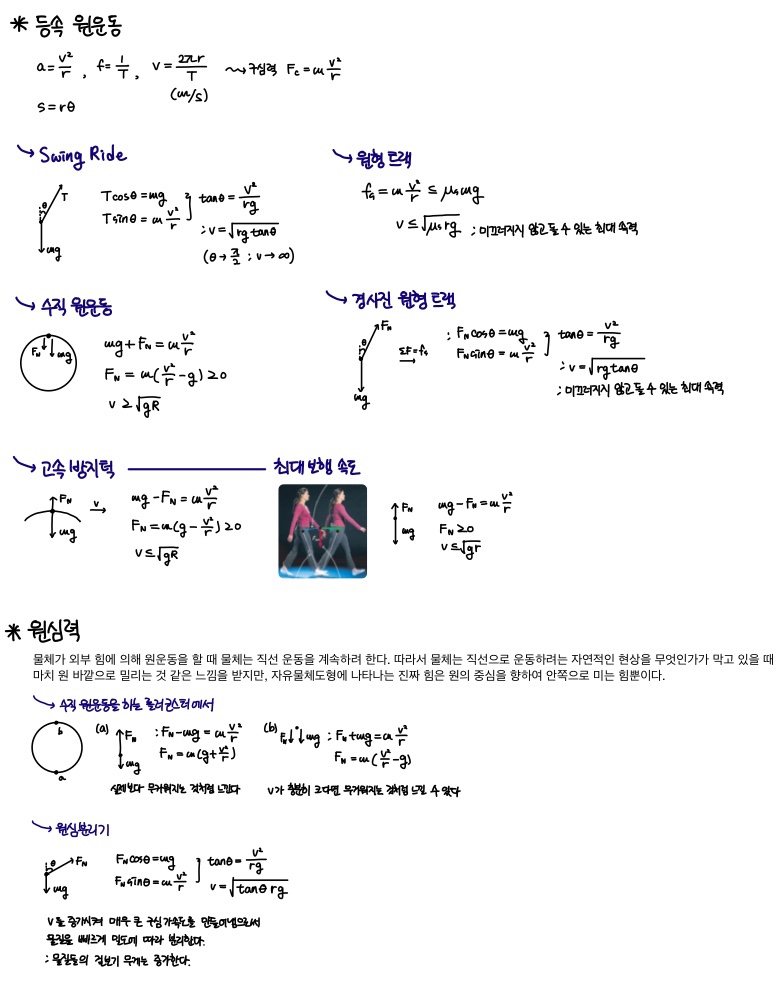 * 등속 원운동
a = v²/r , f = 1/T , v = 2πr/T (m/s) ⤳ 구심력 Fc = m v²/r
s = rθ
Swing Ride
θ T mg
Tcosθ = mg
Tsinθ = m v²/r
tanθ = v²/rg
; v = √(rg tanθ)
(θ → π/2 ; v → ∞)
원형 트랙
fs = m v²/r ≤ μs mg
v ≤ √(μs rg) ; 미끄러지지 않고 돌 수 있는 최대 속력
수직 원운동
FN mg
mg + FN = m v²/r
FN = m(v²/r - g) ≥ 0
v ≥ √gR
경사진 원형 트랙
θ FN mg
ΣF = fs
; FN cosθ = mg
FN sinθ = m v²/r
tanθ = v²/rg
; v = √(rg tanθ)
; 미끄러지지 않고 돌 수 있는 최대 속력
고속 방지턱
FN mg v
mg - FN = m v²/r
FN = m(g - v²/r) ≥ 0
v ≤ √gR
최대 보행 속도
FN mg
mg - FN = m v²/r
FN ≥ 0
v ≤ √gr
* 원심력
물체가 외부 힘에 의해 원운동을 할 때 물체는 직선 운동을 계속하려 한다. 따라서 물체는 직선으로 운동하려는 자연적인 현상을 무엇인가가 막고 있을 때
마치 원 바깥으로 밀리는 것 같은 느낌을 받지만, 자유물체도형에 나타나는 진짜 힘은 원의 중심을 향하여 안쪽으로 미는 힘뿐이다.
수직 원운동을 하는 롤러코스터에서
b a
(a) FN mg
; FN - mg = m v²/r
FN = m(g + v²/r)
실제보다 무거워지는 것처럼 느낀다
(b) FN mg
; FN + mg = m v²/r
FN = m(v²/r - g)
v가 충분히 크다면 무거워지는 것처럼 느낄 수 있다
원심분리기
θ FN mg
FN cosθ = mg
FN sinθ = m v²/r
tanθ = v²/rg
v = √(tanθ rg)
v를 증가시켜 매우 큰 구심 가속도를 만들어냄으로써
물질을 빠르게 밀도에 따라 분리한다.
; 물질들의 겉보기 무게는 증가한다.